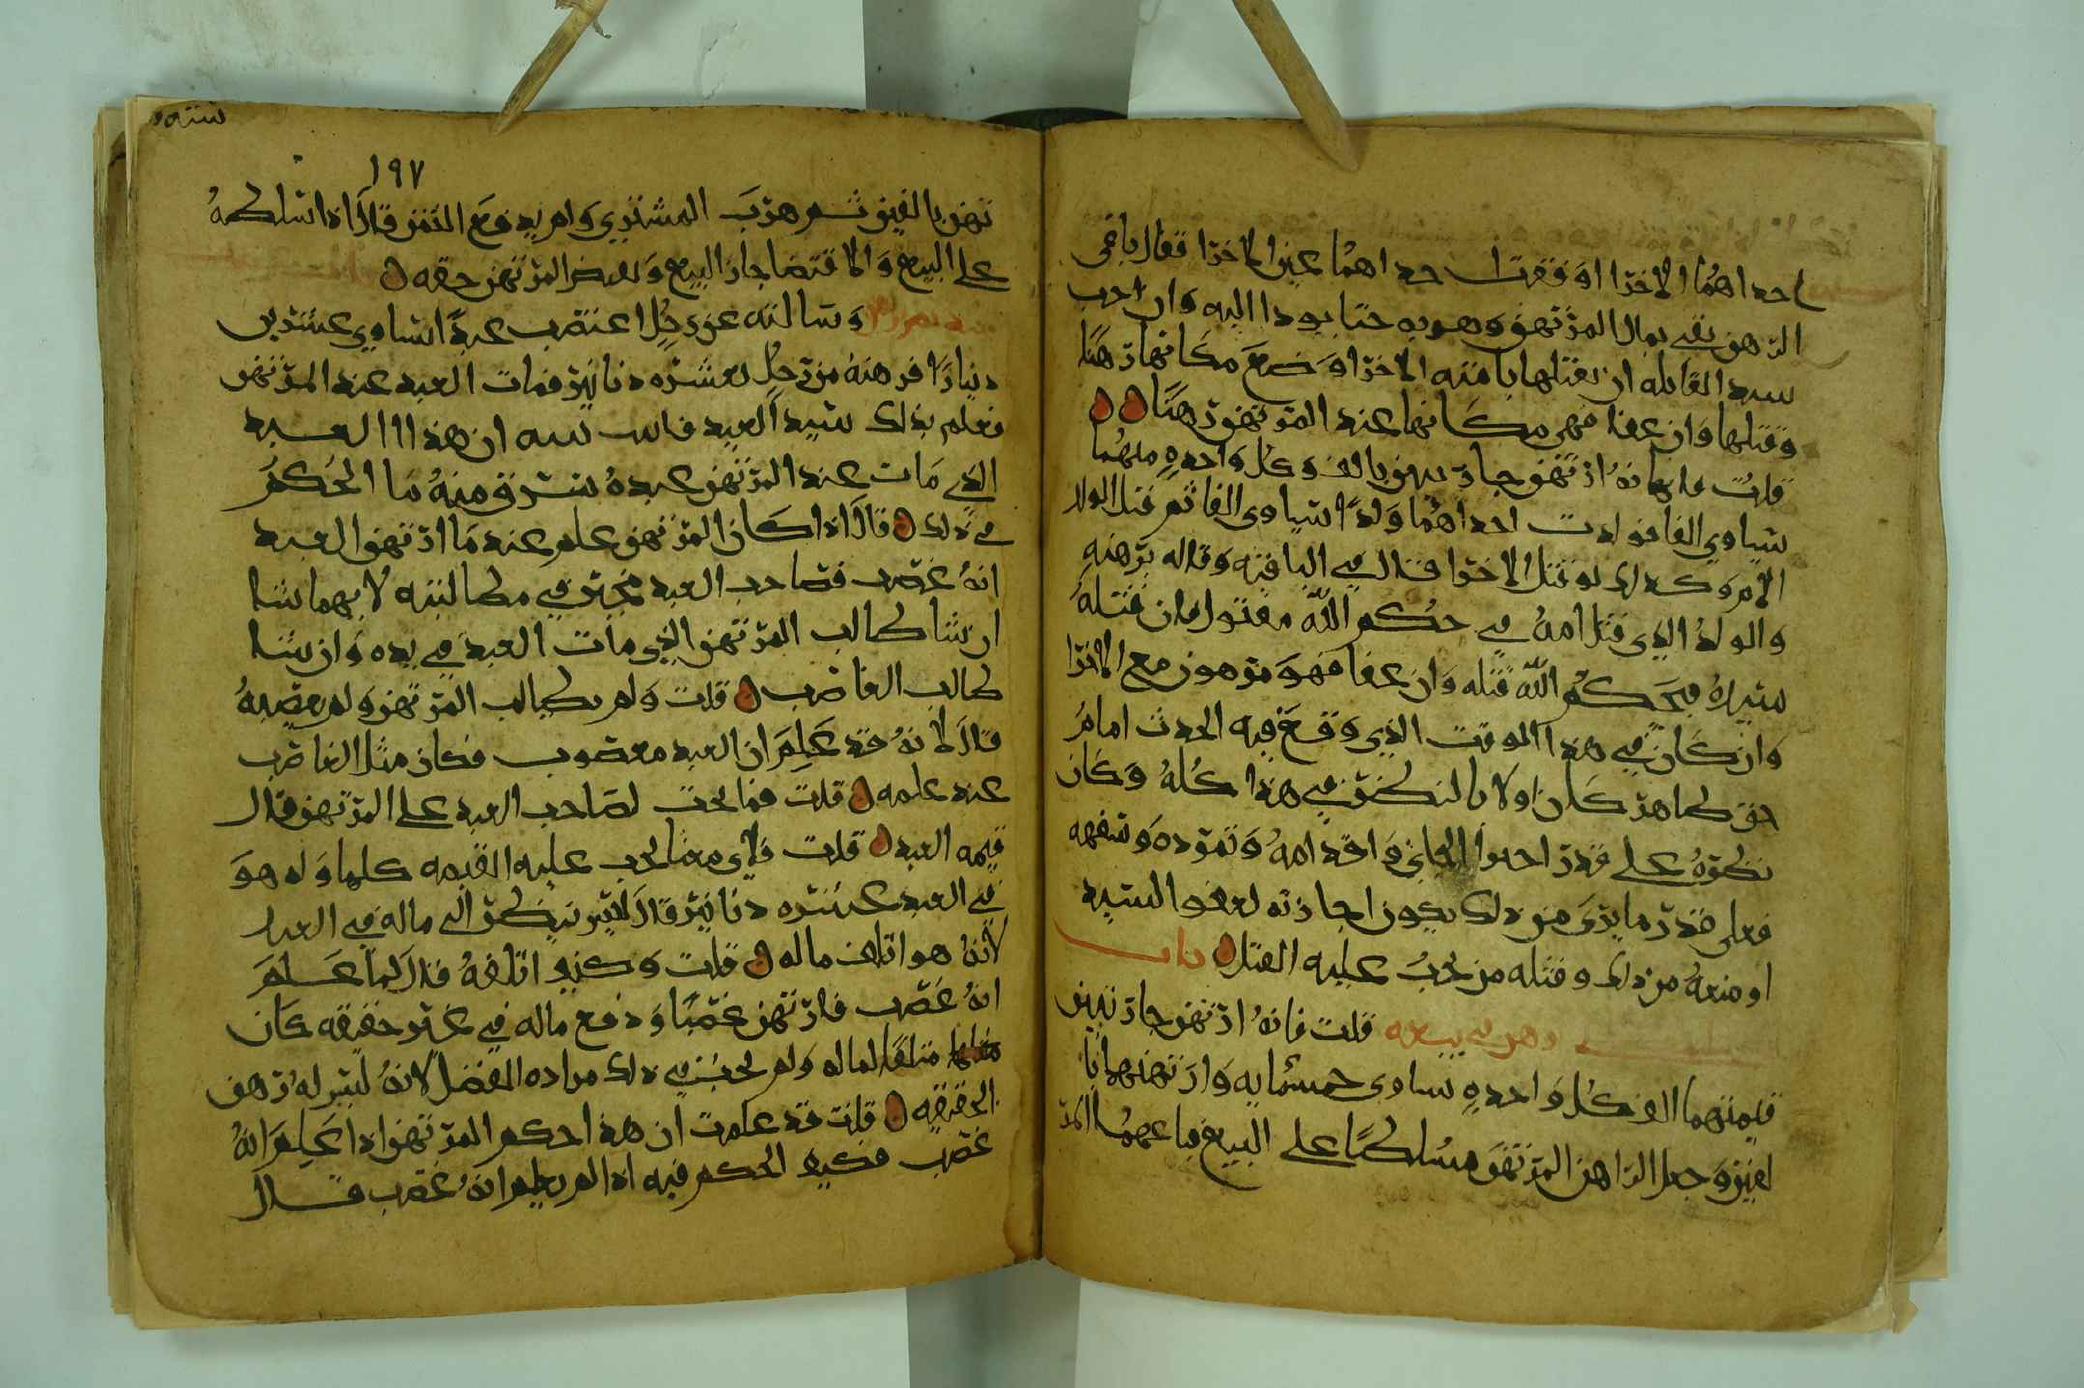 احداهما الاخرا او فقرت احداهما عين الاخرا فقال باقي
الرهن بقي بمال المرتهن وهو به حتا يودا اليه وان احب
سيد القاتله ان يقتلها بامته الاخرا وضع مكانها رهنا
وقتلها وان عفا فهي مكانها عند المرتهن رهنا
قلت فانه ارتهن جاريتين بالف وكل واحده منهما
تساوي الفا فولدت احداهما ولدا يساوي الفا ثم قتل الولد
الام وكذلك لو قتل الاخرا قال في الباقيه وقاله برهنه
والولد الذي قتل امه في حكم الله مقتول فان قتله
سيده فبحكم الله قتله وان عفا فهو مرهون مع الاخرا
وان كان في هذا الوقت الذي وقع فيه الحدث امام
حق ظاهر كان اولا بالنظر في هذا كله وكان
نظره على قدر احوال الجاني واقدامه وتمرده وسفهه
فعلى قدر ما يرى من ذلك يكون اجازته لعفو السيد
او منعه من ذلك وقتله من يجب عليه القتل باب
وهن في بيعه قلت فانه ارتهن جاريتين
قيمتهما الف كل واحده تساوي خمسمايه وارتهنهما با
لفين وجعل الراهن المرتهن مسلطا على البيع فباعهما المر
سته
١٩٧
تهن بالفين ثم هرب المشتري ولم يدفع الثمن قال اذا سلطه
على البيع والاقتضا جاز البيع وبعض المرتهن حقه
وسالته عن رجل اغتصب عبدا يساوي عشرين
دينارا فرهنه من رجل بعشره دنانير فمات العبد عند المرتهن
فعلم بذلك سيد العبد ان هذا العبد
الذي مات عند المرتهن عبده سرق منه ما الحكم
في ذلك قال اذا كان المرتهن علم عند ما ارتهن العبد
انه غصب فصاحب العبد مخير في مطالبته لايهما شا
ان شا طالب المرتهن الذي مات العبد في يده وان شا
طالب الغاصب قلت ولم يطالب المرتهن ولم يغصبه
قال لانه قد علم ان العبد مغصوب فكان مثل الغاصب
عند علمه قلت فما يجب لصاحب العبد على المرتهن قال
قيمه العبد قلت فلاي معنا يجب عليه القيمه كلها وله هو
في العبد عشره دنانير قال ليس ينظر الى ماله في العبد
لانه هو اتلف ماله قلت وكيف اتلفه قال لما علم
انه غصب فارتهن غصبا ودفع ماله في غير حقيقه كان
متلفا لماله ولم يجب في ذلك مراده الفضل لانه ليس له رهن
الحقيقه قلت قد علمت ان هذا حكم المرتهن اذا علم انه
غصب فكيف الحكم فيه اذا لم يعلم انه غصب قال